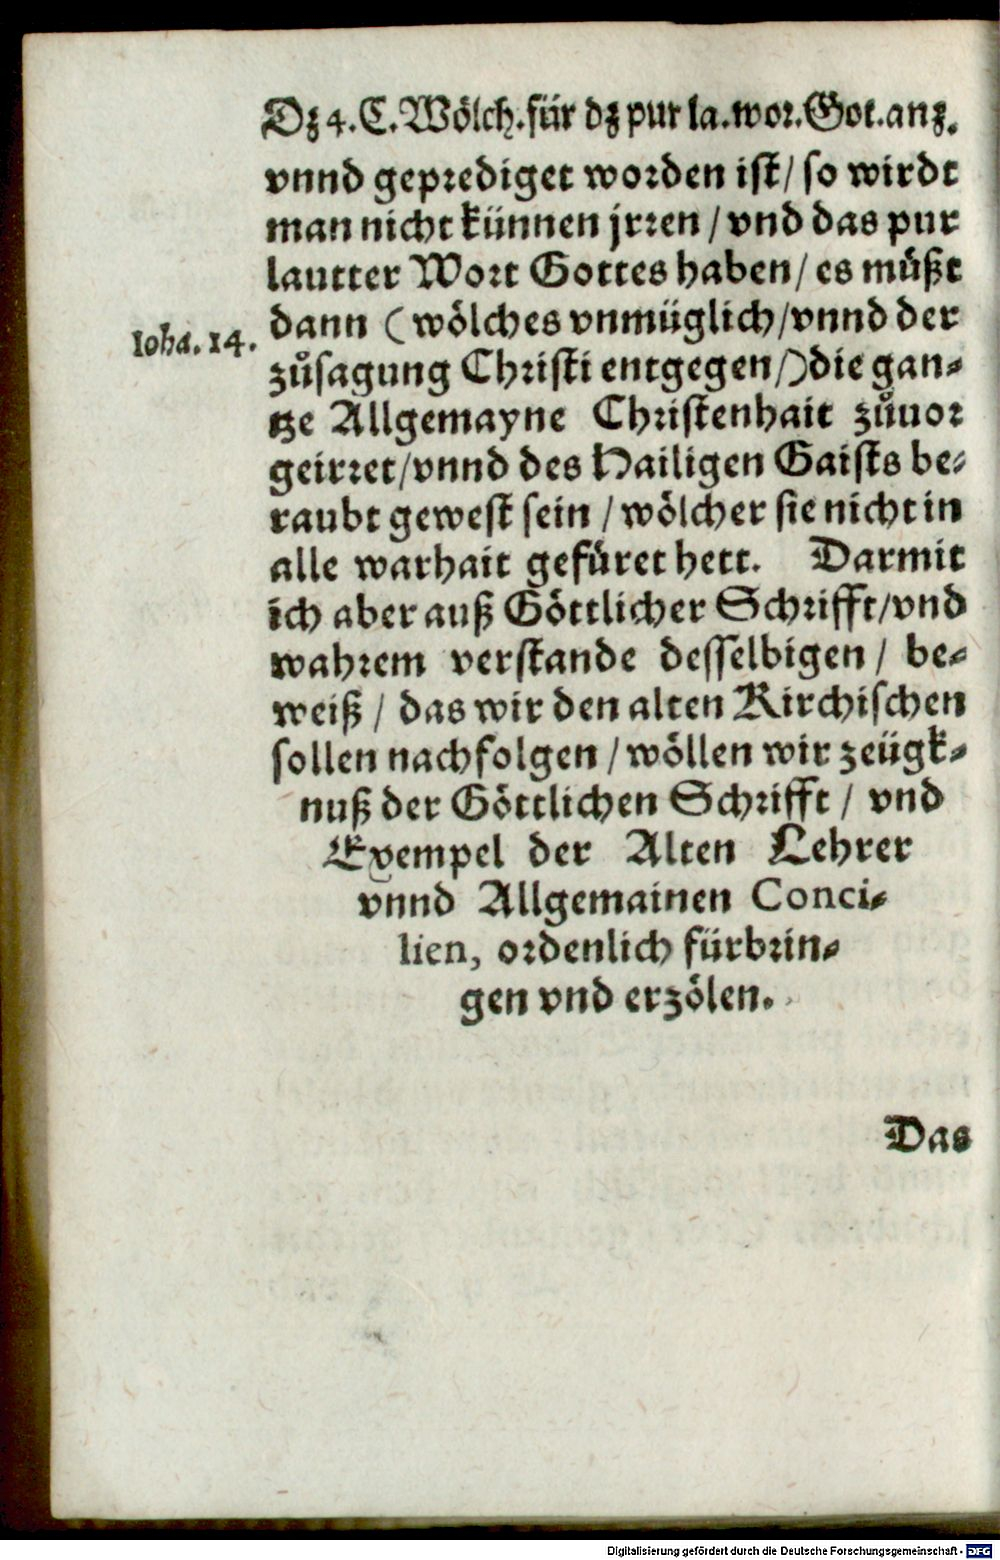 Dz 4. C. Wölch. für dz pur la. wor. Got. anz.
vnnd geprediget worden ist / so wirdt
man nicht künnen jrren / vnd das pur
lautter Wort Gottes haben / es müßt
dann ( wölches vnmüglich / vnnd der
Ioha. 14.
zůsagung Christi entgegen / ) die gan⸗
tze Allgemayne Christenhait zůuor
geirret / vnnd des Hailigen Gaists be⸗
raubt gewest sein / wölcher sie nicht in
alle warhait gefüret hett. Darmit
ich aber auß Göttlicher Schrifft / vnd
wahrem verstande desselbigen / be⸗
weiß / das wir den alten Kirchischen
sollen nachfolgen / wöllen wir zeügk⸗
nuß der Göttlichen Schrifft / vnd
Exempel der Alten Lehrer
vnnd Allgemainen Conci⸗
lien, ordenlich fürbrin⸗
gen vnd erzölen.
Das
Digitalisierung gefördert durch die Deutsche Forschungsgemeinschaft - DFG